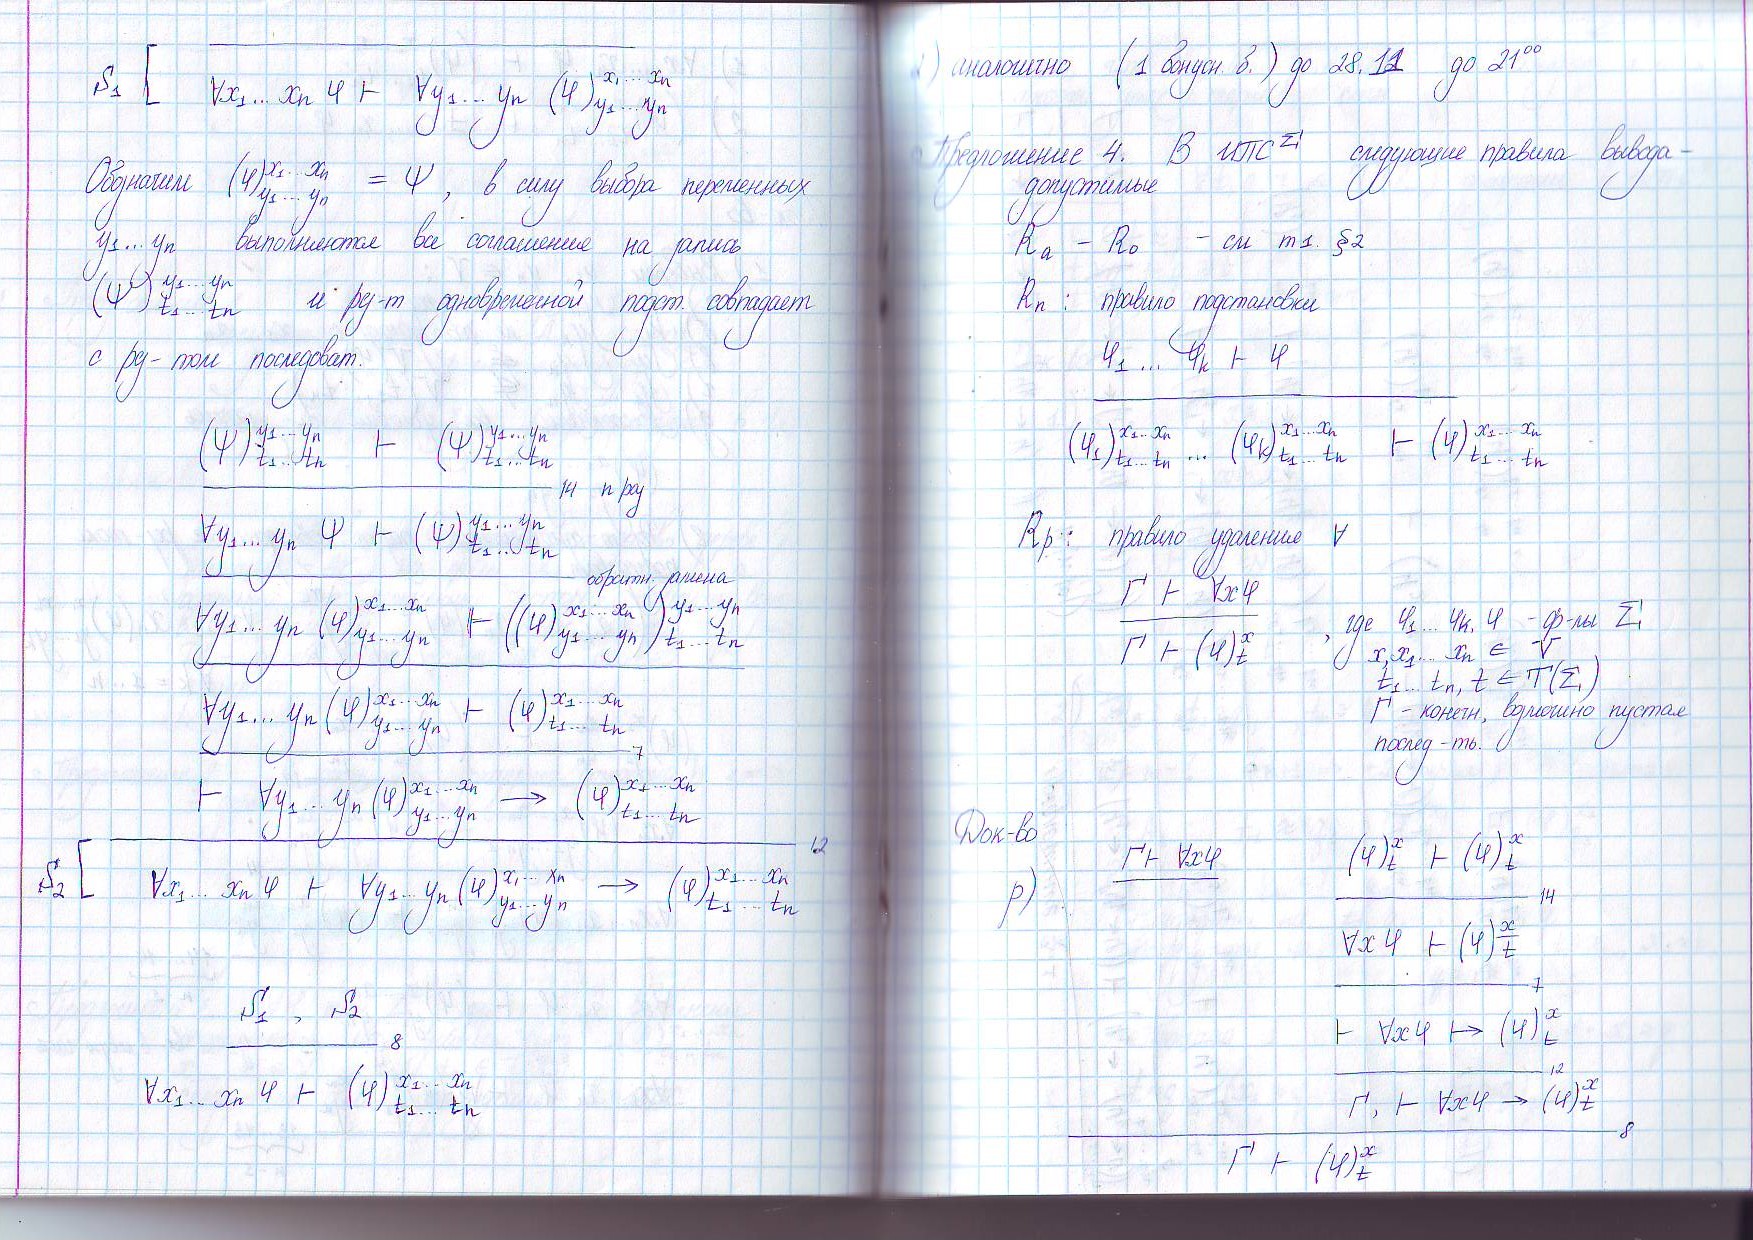 S₁ [ ∀x₁...xₙ φ ⊢ ∀y₁...yₙ (φ)^{x₁...xₙ}_{y₁...yₙ}
Обозначим (φ)^{x₁...xₙ}_{y₁...yₙ} = ψ, в силу выбора переменных
y₁...yₙ выполняются все соглашения на запись
(ψ)^{y₁...yₙ}_{t₁...tₙ} и рез-т одновременной подст. совпадает
с рез-том последоват.
(ψ)^{y₁...yₙ}_{t₁...tₙ} ⊢ (ψ)^{y₁...yₙ}_{t₁...tₙ}
14 n раз
∀y₁...yₙ ψ ⊢ (ψ)^{y₁...yₙ}_{t₁...tₙ}
обратн. замена
∀y₁...yₙ (φ)^{x₁...xₙ}_{y₁...yₙ} ⊢ ((φ)^{x₁...xₙ}_{y₁...yₙ})^{y₁...yₙ}_{t₁...tₙ}
∀y₁...yₙ (φ)^{x₁...xₙ}_{y₁...yₙ} ⊢ (φ)^{x₁...xₙ}_{t₁...tₙ}
7
⊢ ∀y₁...yₙ (φ)^{x₁...xₙ}_{y₁...yₙ} → (φ)^{x₁...xₙ}_{t₁...tₙ}
12
S₂ [ ∀x₁...xₙ φ ⊢ ∀y₁...yₙ (φ)^{x₁...xₙ}_{y₁...yₙ} → (φ)^{x₁...xₙ}_{t₁...tₙ}
S₁, S₂
8
∀x₁...xₙ φ ⊢ (φ)^{x₁...xₙ}_{t₁...tₙ}
) аналогично (1 бонусн. б.) до 28.11 до 21⁰⁰
Предложение 4. В ИПС^Σ следующие правила вывода -
допустимые
Rₐ - Rₒ - см т1. §2
Rп: правило подстановки
φ₁ ... φₖ ⊢ φ
(φ₁)^{x₁...xₙ}_{t₁...tₙ} ... (φₖ)^{x₁...xₙ}_{t₁...tₙ} ⊢ (φ)^{x₁...xₙ}_{t₁...tₙ}
Rр: правило удаления ∀
Γ ⊢ ∀xφ
Γ ⊢ (φ)^x_t , где φ₁...φₖ, φ - ф-лы Σ
x, x₁...xₙ ∈ V
t₁...tₙ, t ∈ T(Σ)
Γ - конечн, возможно пустая
послед-ть.
Док-во
р) Γ ⊢ ∀xφ (φ)^x_t ⊢ (φ)^x_t
14
∀xφ ⊢ (φ)^x_t
7
⊢ ∀xφ ↦ (φ)^x_t
12
Γ, ⊢ ∀xφ → (φ)^x_t
8
Γ ⊢ (φ)^x_t